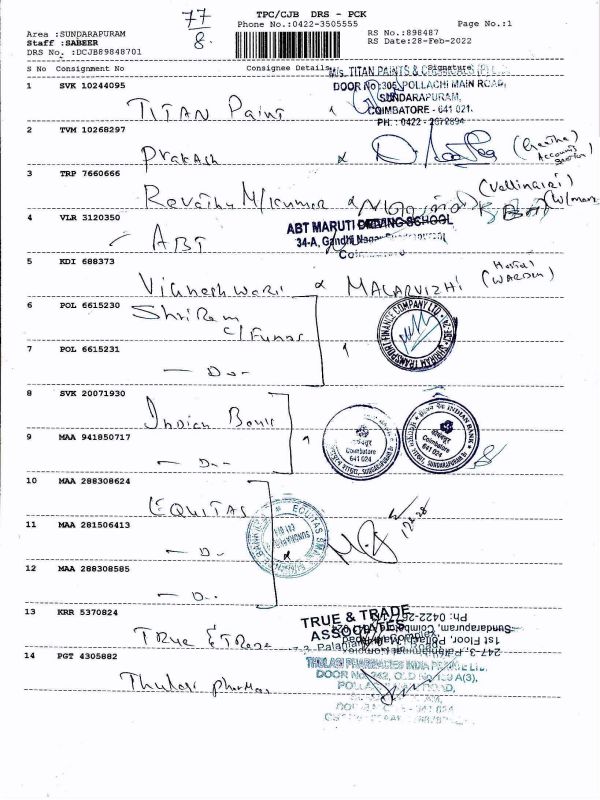 77
8.
TPC/CJB DRS - PCK
Phone No.:0422-3505555
Page No.:1
Area :SUNDARAPURAM
Staff :SABEER
DRS No. :DCJB89848701
RS No.:898487
RS Date:28-Feb-2022
S No Consignment No Consignee Details Signature
1 SVK 10244095
M/s. TITAN PAINTS &
DOOR No:305, POLLACHI MAIN ROAD,
SUNDARAPURAM,
COIMBATORE - 641 021.
PH. : 0422 - 2672894
TITAN Paint
2 TVM 10268297
Prakash
(Geetha)
Accounts
Section
3 TRP 7660666
Revathy M/kumar
(Vellinairi)
4 VLR 3120350
ABT
ABT MARUTI DRIVING SCHOOL
34-A, Gandhi Nagar, Sundarapuram,
Coimbatore
5 KDI 688373
Vigneshwari MALARVIZHI
Hostel
(WARDEN)
6 POL 6615230
Shri Ram
C/ Funds
SHRIRAM TRANSPORT FINANCE COMPANY LTD.
7 POL 6615231
- Do -
8 SVK 20071930
Indian Bank
Coimbatore
641 024
INDIAN BANK
Coimbatore
641 024
SUNDARAPURAM
9 MAA 941850717
- Do -
10 MAA 288308624
EQUITAS
EQUITAS SMALL
11 MAA 281506413
- D -
12 MAA 288308585
- D..
13 KRR 5370824
True & Trade
TRUE & TRADE
ASSOCIATES
247-3, Palaniammal Complex
1st Floor, Pollachi Main Road
Sundarapuram, Coimbatore
14 PGT 4305882
Thulasi pharmas
THULASI PHARMACIES INDIA PRIVATE LTD.
DOOR No. 242, OLD No 139 A(3),